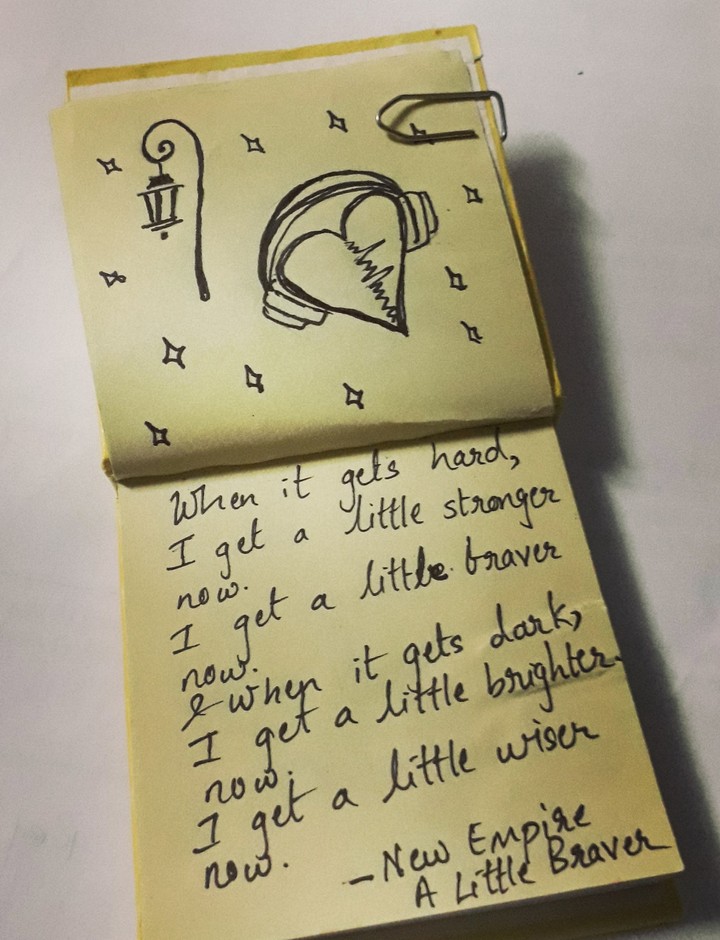 When it gets hard,
I get a little stronger
now.
I get a little braver
now.
& when it gets dark,
I get a little brighter
now.
I get a little wiser
now.
- New Empire
A Little Braver